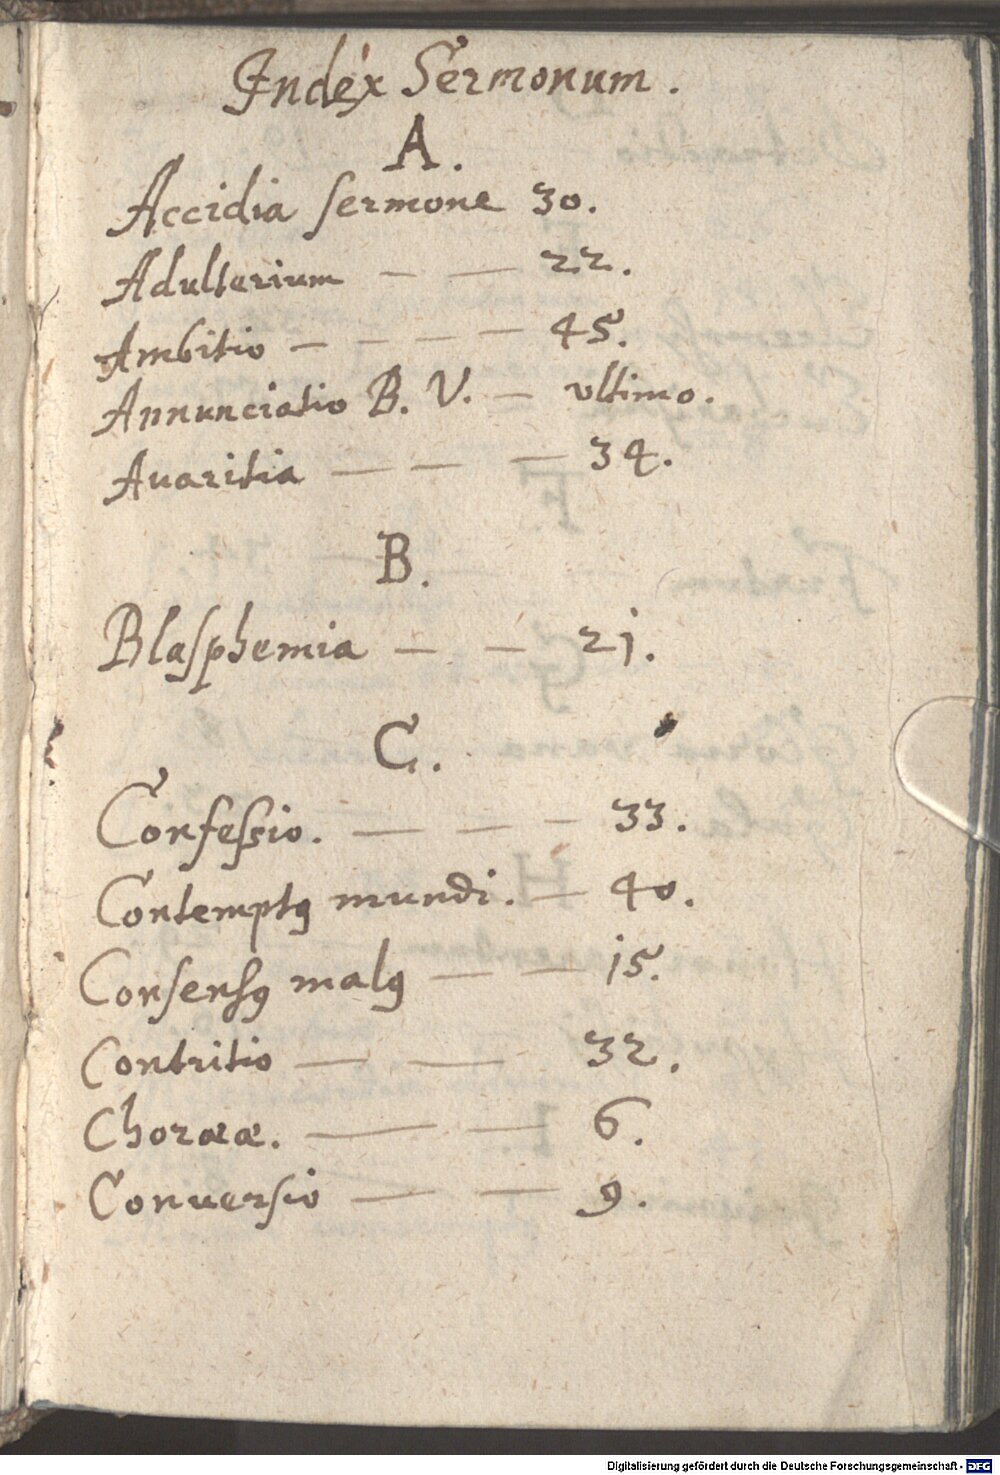 Index Sermonum.
A.
Accidia sermone 30.
Adulterium — — 22.
Ambitio — — — — 45.
Annunciatio B. V. — vltimo.
Auaritia — — — 34.
B.
Blasphemia — — 21.
C.
Confessio. — — — 33.
Contemptꝰ mundi. — 40.
Consensꝰ malꝰ — — 15.
Contritio — — 32.
Choraea. — — 6.
Conuersio — — 9.
Digitalisierung gefördert durch die Deutsche Forschungsgemeinschaft - DFG